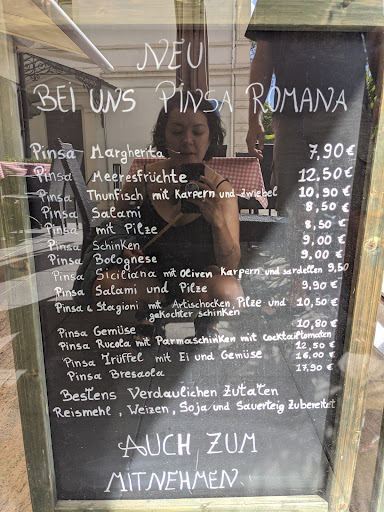 NEU
BEI UNS PINSA ROMANA
Pinsa Margherita 7,90 €
Pinsa Meeresfrüchte 12,50 €
Pinsa Thunfisch mit Kapern und Zwiebel 10,90 €
Pinsa Salami 8,50 €
Pinsa mit Pilze 8,50 €
Pinsa Schinken 9,00 €
Pinsa Bolognese 9,00 €
Pinsa Siciliana mit Oliven Karpern und sardellen 9,50
Pinsa Salami und Pilze 9,90 €
Pinsa 4 Stagioni mit Artischocken, Pilze und 10,50 €
gekochter schinken
Pinsa Gemüse 10,80 €
Pinsa Rucola mit Parmaschinken mit cocktailtomaten 12,50 €
Pinsa Trüffel mit Ei und Gemüse 16,00 €
Pinsa Bresaola 17,90 €
Bestens Verdaulichen Zutaten
Reismehl, Weizen, Soja und Sauerteig Zubereitet
AUCH ZUM
MITNEHMEN